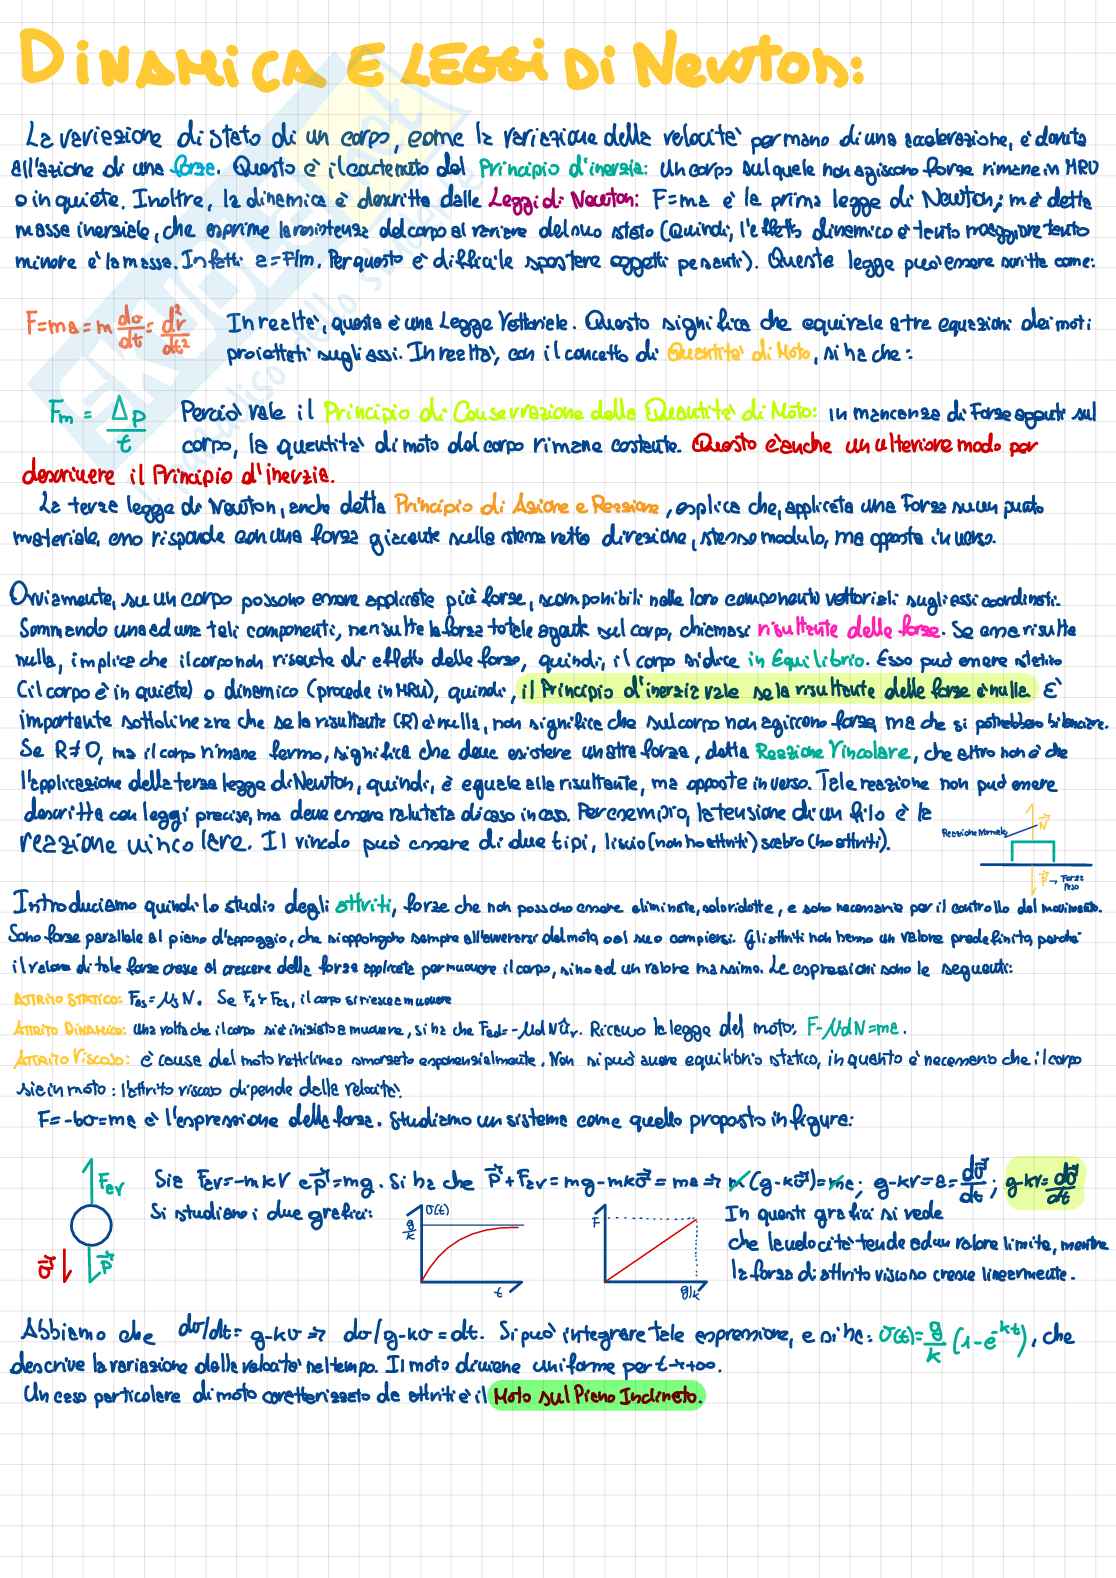 DINAMICA E LEGGI DI NEWTON:
La variazione di stato di un corpo, come la variazione della velocità per mano di una accelerazione, è dovuta
all'azione di una forza. Questo è il contenuto del Principio d'inerzia: Un corpo sul quale non agiscono forze rimane in MRU
o in quiete. Inoltre, la dinamica è descritta dalle Leggi di Newton: F=ma è la prima legge di Newton; m è detta
massa inerziale, che esprime la resistenza del corpo al variare del suo stato (Quindi, l'effetto dinamico è tanto maggiore tanto
minore è la massa. Infatti a=F/m. Per questo è difficile spostare oggetti pesanti). Questa legge può essere scritta come:
F=ma = m dv/dt = d²r/dt² In realtà, questa è una Legge Vettoriale. Questo significa che equivale a tre equazioni dei moti
proiettati sugli assi. In realtà, con il concetto di Quantità di Moto, si ha che:
Fm = Δp/t Perciò vale il Principio di Conservazione della Quantità di Moto: in mancanza di Forze agenti sul
corpo, la quantità di moto del corpo rimane costante. Questo è anche un ulteriore modo per
descrivere il Principio d'inerzia.
La terza legge di Newton, anche detta Principio di Azione e Reazione, esplica che, applicata una Forza su un punto
materiale, esso risponde con una forza giacente sulla stessa retta direzione, stesso modulo, ma opposta in verso.
Ovviamente, su un corpo possono essere applicate più forze, scomponibili nelle loro componenti vettoriali sugli assi coordinati.
Sommando una ad una tali componenti, ne risulta la forza totale agente sul corpo, chiamasi risultante delle forze. Se essa risulta
nulla, implica che il corpo non risente di effetto delle forze, quindi, il corpo si dice in Equilibrio. Esso può essere statico
(il corpo è in quiete) o dinamico (procede in MRU), quindi, il Principio d'inerzia vale se la risultante delle forze è nulla. È
importante sottolineare che se la risultante (R) è nulla, non significa che sul corpo non agiscono forze, ma che si potrebbero bilanciare.
Se R≠0, ma il corpo rimane fermo, significa che deve esistere un'altra forza, detta Reazione Vincolare, che altro non è che
l'applicazione della terza legge di Newton, quindi, è eguale alla risultante, ma opposta in verso. Tale reazione non può essere
descritta con leggi precise, ma deve essere valutata di caso in caso. Per esempio, la tensione di un filo è la
reazione vincolare. Il vincolo può essere di due tipi, liscio (non ho attriti) scabro (ho attriti).
Reazione Normale N
P → Forza Peso
Introduciamo quindi lo studio degli attriti, forze che non possono essere eliminate, solo ridotte, e sono necessarie per il controllo del movimento.
Sono forze parallele al piano d'appoggio, che si oppongono sempre all'avverarsi del moto, o al suo compiersi. Gli attriti non hanno un valore predefinito, perché
il valore di tale forza cresce al crescere della forza applicata per muovere il corpo, sino ad un valore massimo. Le espressioni sono le seguenti:
ATTRITO STATICO: Fas = μs N. Se FA > Fas, il corpo si riesce a muovere
ATTRITO DINAMICO: Una volta che il corpo si è iniziato a muovere, si ha che Fad = -μd N ûv. Ricavo la legge del moto: F-μdN=ma.
ATTRITO VISCOSO: è causa del moto rettilineo smorzato esponenzialmente. Non si può avere equilibrio statico, in quanto è necessario che il corpo
sia in moto: l'attrito viscoso dipende dalla velocità.
F=-bv=ma è l'espressione della forza. Studiamo un sistema come quello proposto in figura:
Fav
v P
Sia Fav=-mkv e P=mg. Si ha che P+Fav = mg-mkv = ma ⇒ m(g-kv)=ma; g-kv=a= dv/dt; g-kv= dv/dt
Si studiano i due grafici:
g/k v(t) t
F g/k
In questi grafici si vede
che la velocità tende ad un valore limite, mentre
la forza di attrito viscoso cresce linearmente.
Abbiamo che dv/dt = g-kv ⇒ dv/g-kv = dt. Si può integrare tale espressione, e si ha: v(t)= g/k (1-e^-kt), che
descrive la variazione della velocità nel tempo. Il moto diviene uniforme per t→+∞.
Un caso particolare di moto caratterizzato da attriti è il Moto sul Piano Inclinato.